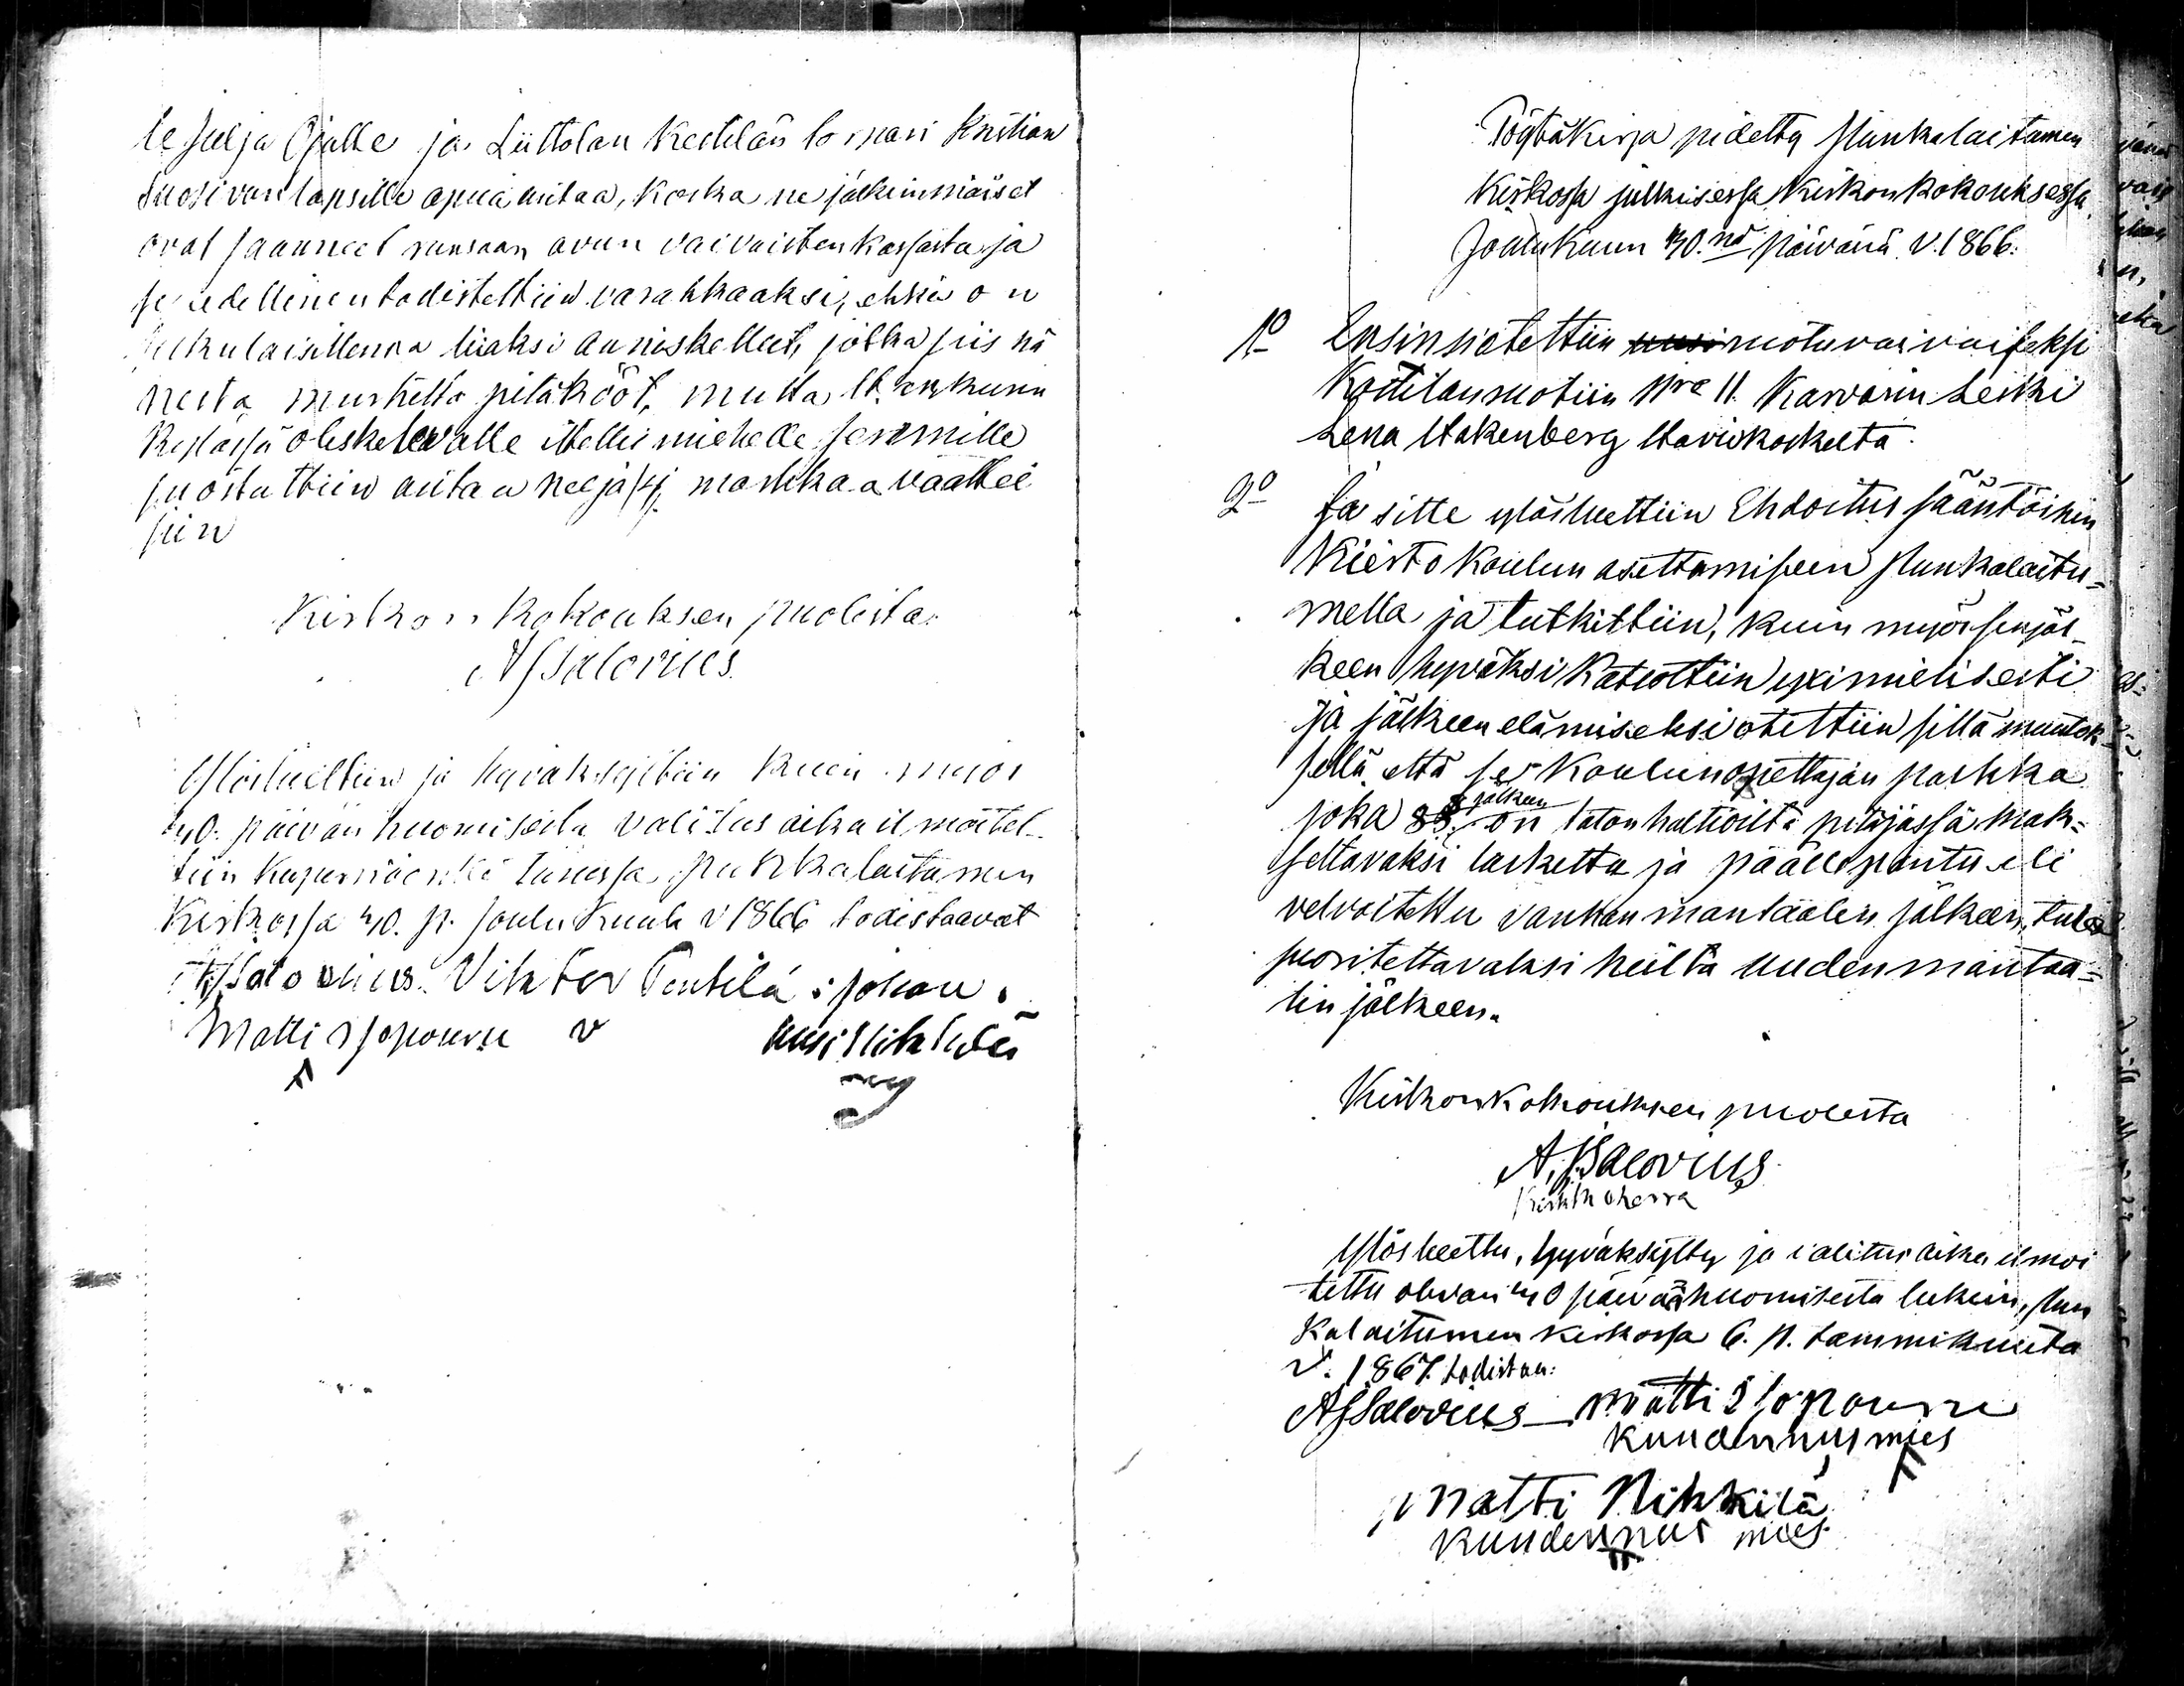 le Julja Ojalle ja Liittolan Kestilän tornari Kristian
Suosivan lapsille apua antaa, koska ne jälkimmäiset
ovat saanneet runsaan avun vaivaisten kassasta ja
se edellinen todistettiin varakkaaksi, ehkä on
liiaksi anniskellut, jotka siis nä
neita pitäkööt, mutta
oliskelevalle itellis miehelle
suostuttiin antaa neljä /4/ markkaa vaattei
siin
Kirkon kokouksen puolesta
AJSalovius.
Ylösluettiin ja hyväksyttiin kuin myös
30. päivän huomiseita valitus aika ilmoitet-
tiin tässessa Punkalaitumen
Kirkossa 30. p. Joulukuuta v 1866 todistaavat
AJSalovius. Vihtor Pentilä : Johan
Matti Yoponen v uusi
Pöytäkirja pidetty Punkalaitumen
Kirkossa julkisessa Kirkonkokouksessa
Joulukuun 30.nä päivänä v. 1866.
1o Ensin otettiin uusi ruotuvaivaiseksi
Kostilan ruotiin Nro 11. Karvarin Leski
Lena Stakenberg Haviokoskelta.
2o Ja sitte ylösluettiin Ehdoitus sääntöihin
Kierto Koulun asettamiseen Punkalaitu=
mella ja tutkittiin, kuin myös senjäl-
keen hyväksi katsottiin yximielisesti
ja jälkeen elämiseksi otettiin sillä muutok=
sella että se Koulunopettajan palkka
joka 88. jälkeen on talon haltioilta pitäjässä mak=
settavaksi laskettu ja päälle pantu eli
velvoitettu vanhan mantaalin jälkeen, tulee
suoritettavaksi heiltä uuden mantaa=
lin jälkeen.
Kirkonkokouksen puolesta
A. J.Salovius
Kirkkoherra
Ylösluettu, hyväksytty ja valitus aika ilmoi
tettu olevan 30 päivää huomiseita lukein, Pun
kalaitumen kirkossa 6. p. tammikuuta
v. 1867. todistaa:
AJSalovius Matti Yoponen
kuudennusmies
Matti Nikkilä
kuudennus mies